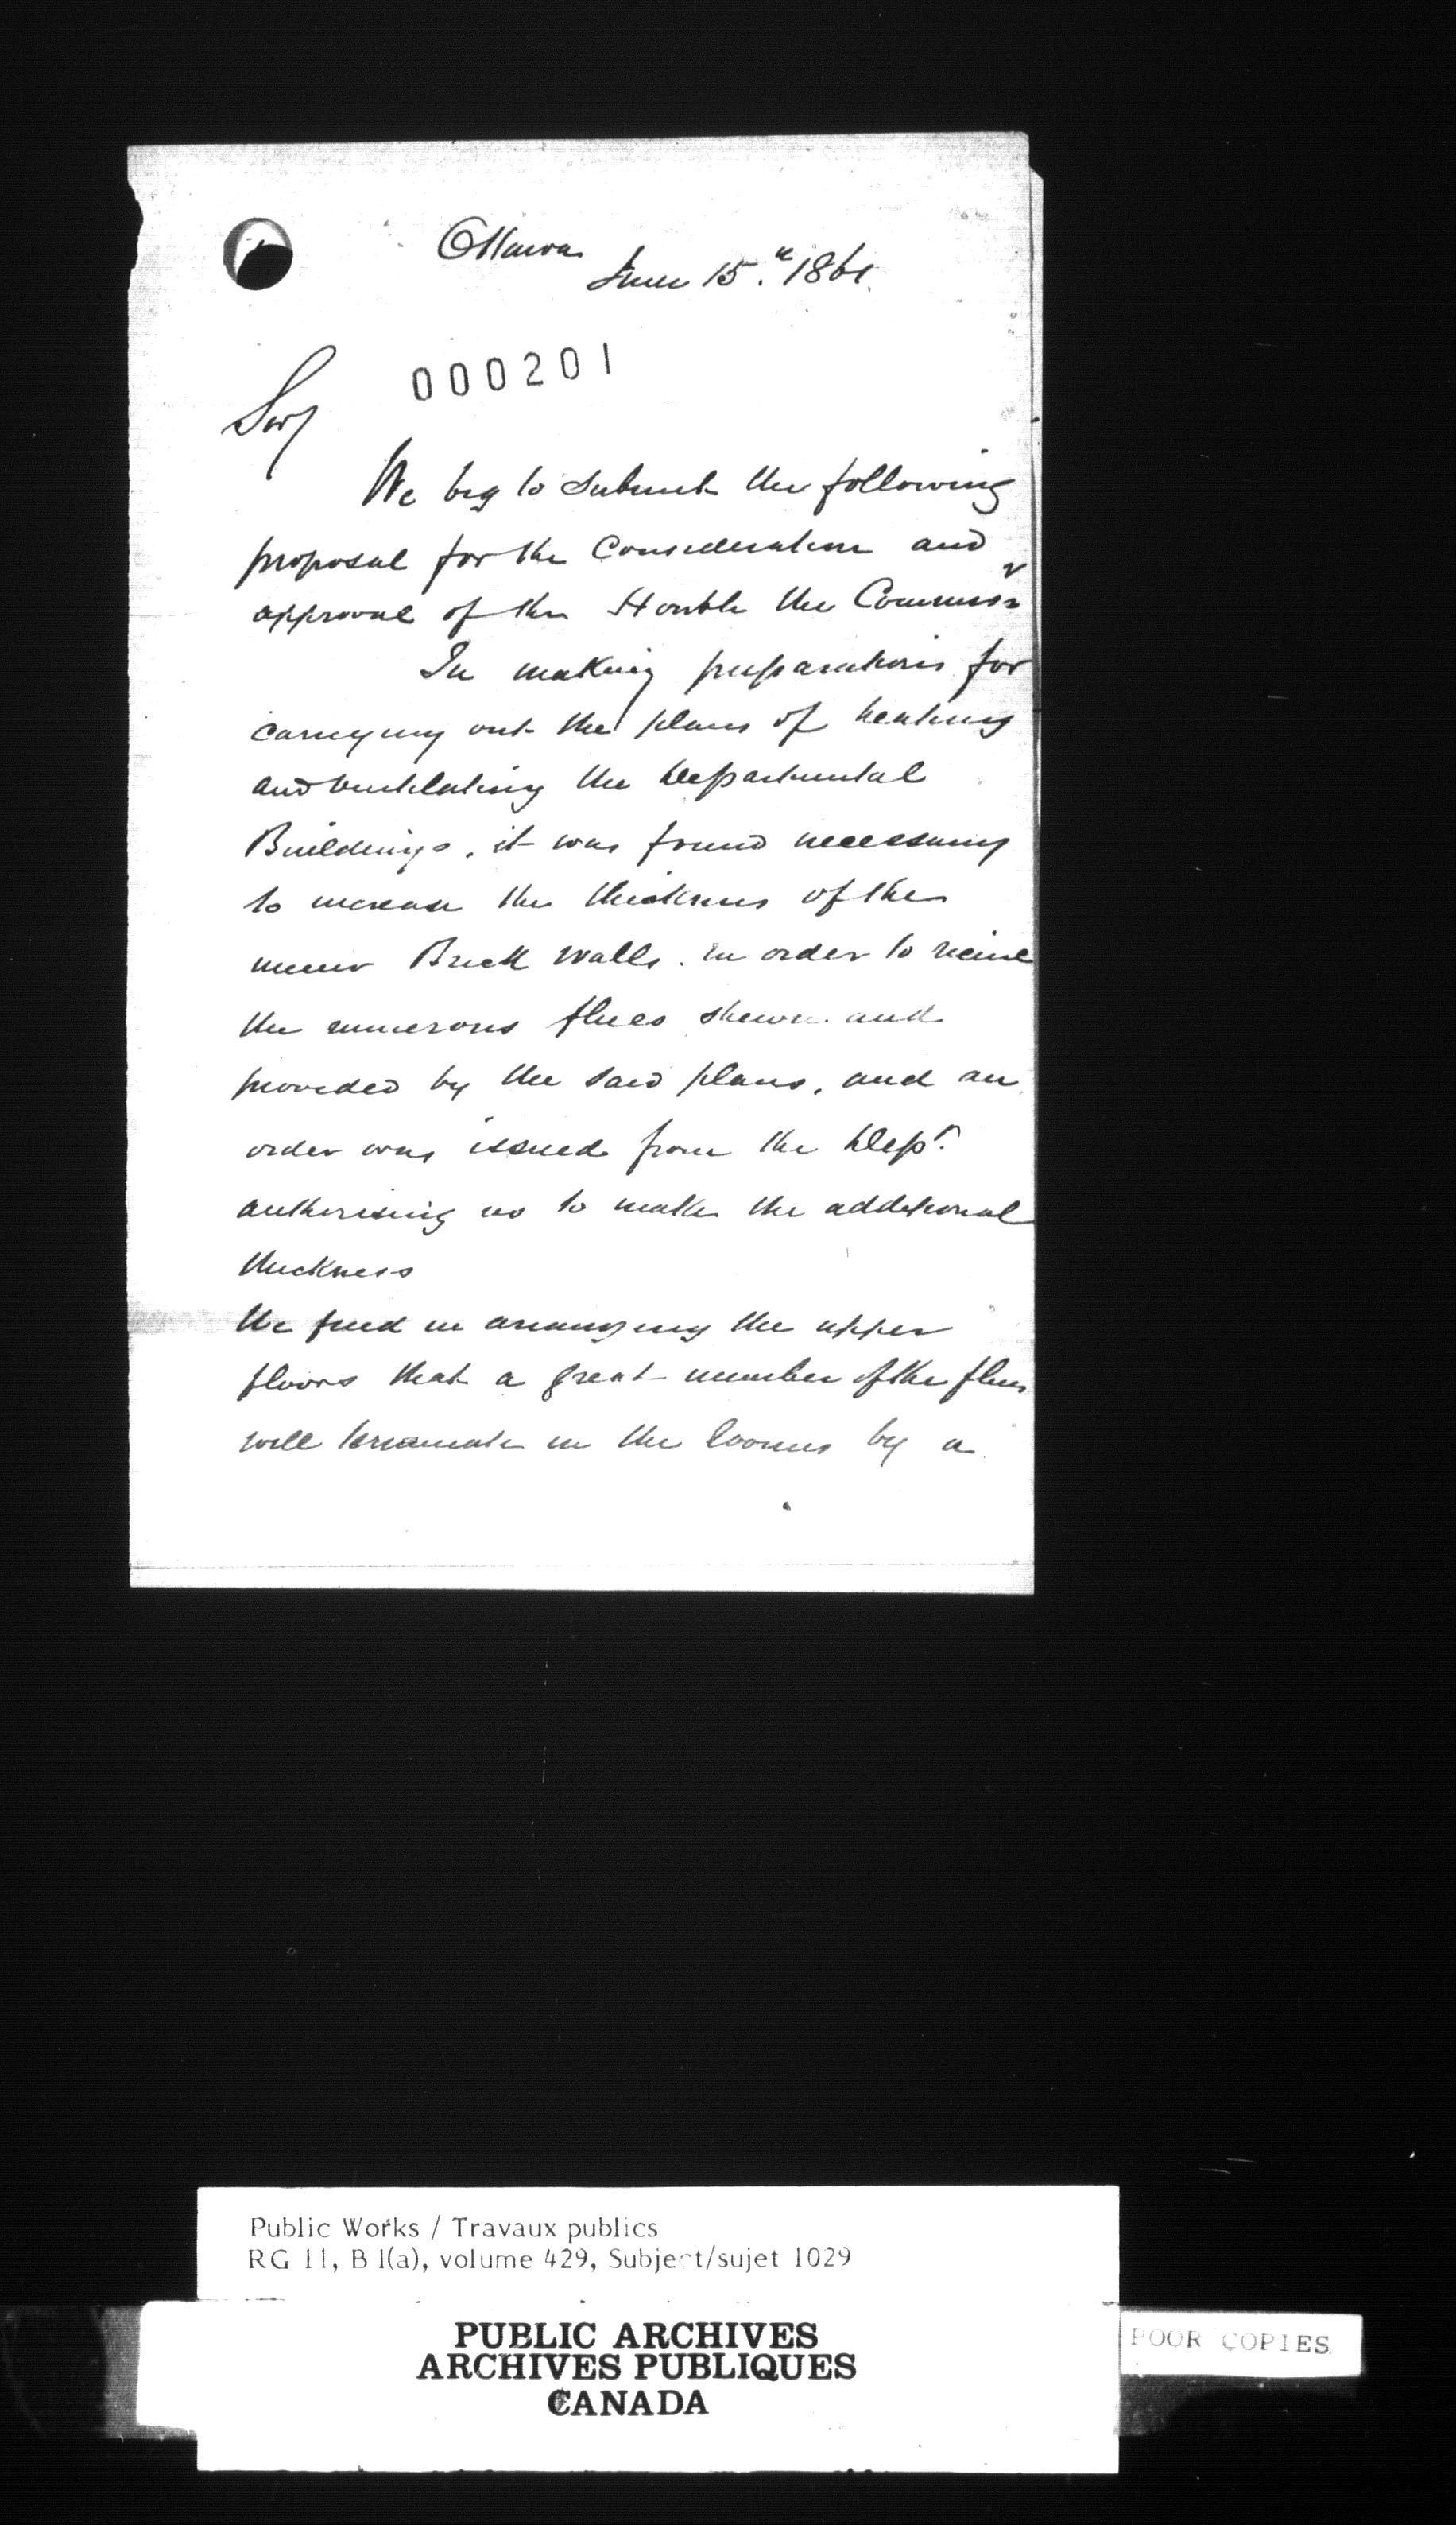 Ottawa
June 15.th 1861
000201
Sir/
We beg to submit the following
proposal for the Consideration and
approval of the Honble the Commissr
In making preparations for
carrying out the plans of heating
and ventilating the Departmental
Buildings, it was found necessary
to increase the thickness of the
inner Brick walls. in order to receive
the numerous flues shewn and
provided by the said plans, and an
order was issued from the Dept.
authorising us to make the additional
thickness
We find in arranging the upper
floors that a great number of the flues
will terminate in the rooms by a
Public Works / Travaux publics
RG 11, B 1(a), volume 429, Subject/sujet 1029
PUBLIC ARCHIVES
ARCHIVES PUBLIQUES
CANADA
POOR COPIES